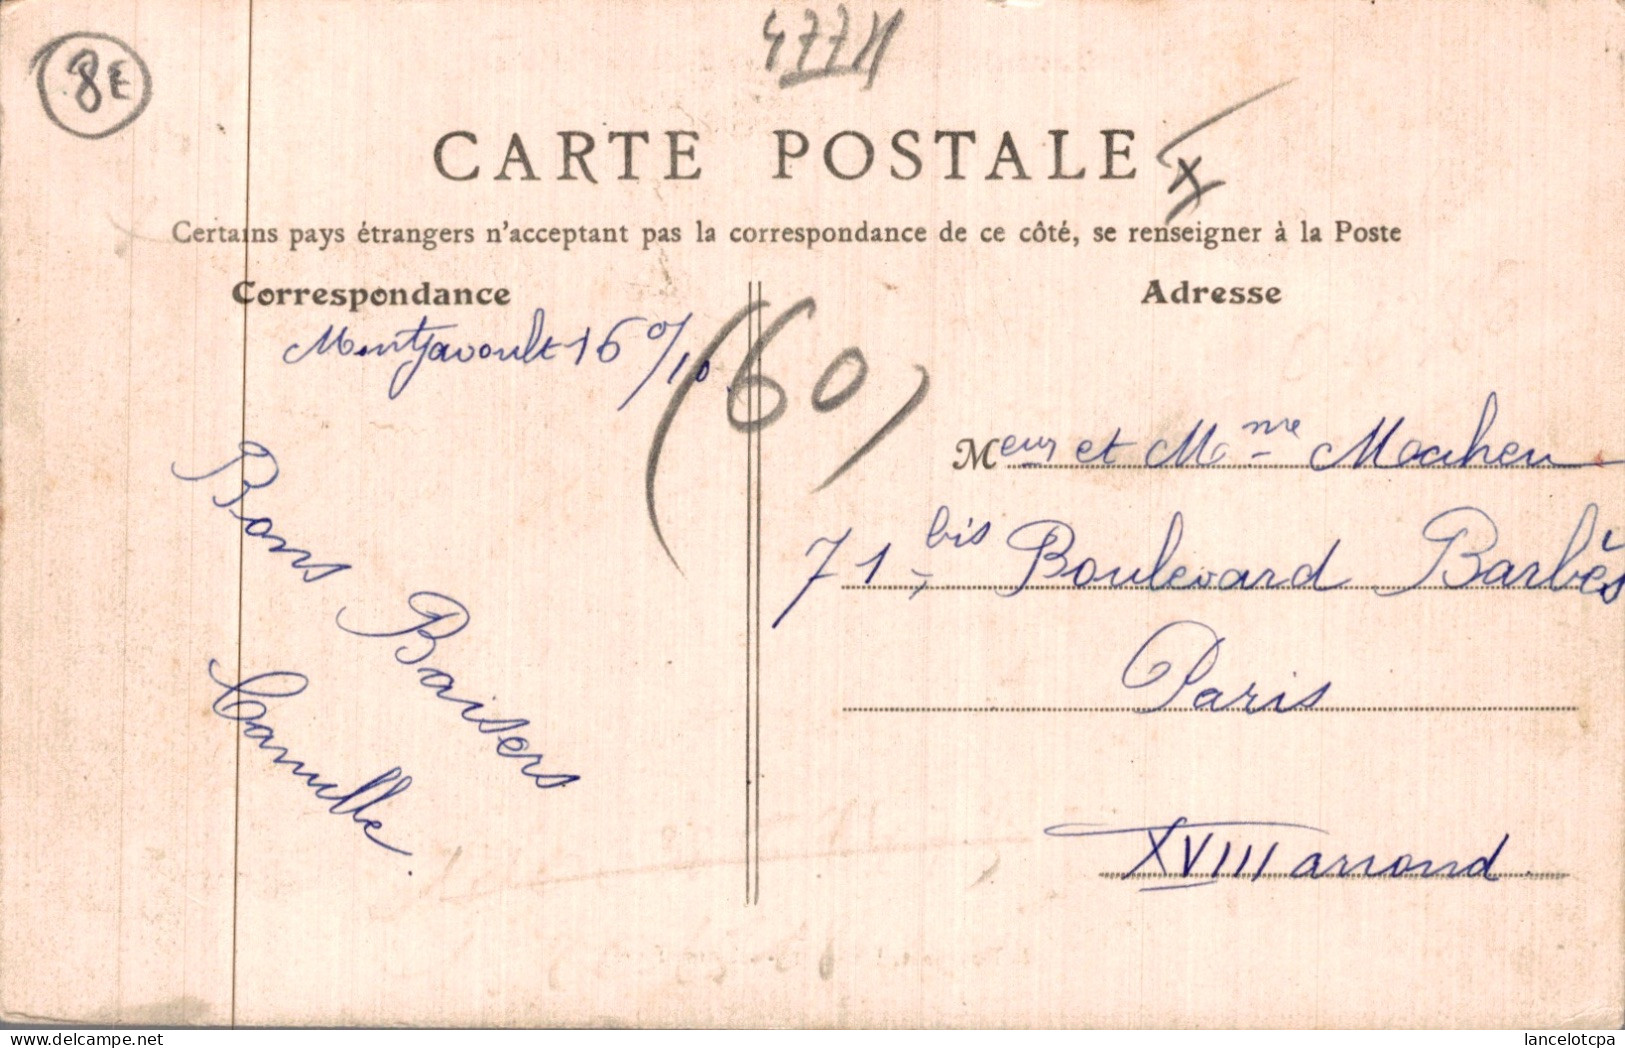 8E
CARTE POSTALE
Certains pays étrangers n'acceptant pas la correspondance de ce côté, se renseigner à la Poste
Correspondance
Montjavoult 16 9/10
(60)
Bons Baisers
Camille
Adresse
Meur et Mme Macheu
71 bis Boulevard Barbès
Paris
XVIII arrond.
Delcampe.net
lancelotcpa